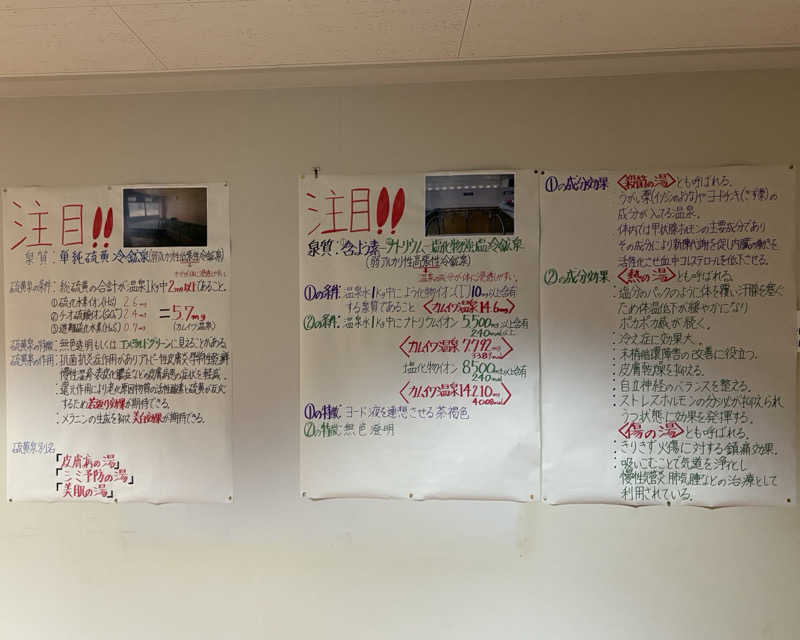 注目!!
泉質:単純硫黄冷鉱泉(弱アルカリ性低張性冷鉱泉)
硫黄泉の条件:総硫黄の合計が温泉1kg中2mg以上であること
①硫化水素イオン(HS) 2.6mg
②チオ硫酸イオン 2.4mg
③遊離硫化水素(H₂S) 0.7mg
=5.7mg
(カムイワ温泉)
硫黄泉の特徴:無色透明もしくはエメラルドグリーンに見えることがある。
硫黄泉の作用:抗菌抗炎症作用がありアトピー性皮膚炎
慢性湿疹 などの皮膚病の症状を軽減.
:還元作用により老化原因物質の活性酸素も硫黄が反応
するため若返り効果が期待できる.
:メラニンの生成を抑え美白効果が期待できる.
硫黄泉別名
「皮膚病の湯」
「シミ予防の湯」
「美肌の湯」
注目!!
泉質:含よう素-ナトリウム-塩化物強塩冷鉱泉
(弱アルカリ性高張性冷鉱泉)
温泉の成分が体に浸透しやすい.
①の条件:温泉水1kg中によう化物イオン(I)10mg以上含有
する泉質であること 〈カムイワ温泉14.6mg〉
②の条件:温泉水1kg中にナトリウムイオン5500mg以上含有
240mval以上
〈カムイワ温泉7792mg〉
塩化物イオン 8500mg以上含有
240mval
〈カムイワ温泉14210mg〉
①の特徴:ヨードン液を連想させる茶褐色
②の特徴:無色澄明
①の成分効果 〈殺菌の湯〉とも呼ばれる.
うがい薬(イソジンのような)やヨードチンキ(きず薬)の
成分が入ってる温泉.
体内では甲状腺ホルモンの主要成分であり
その成分により新陳代謝を促し内臓の働きを
活性化させ血中コレステロールを低下させる.
②の成分効果 〈熱の湯〉とも呼ばれる.
:塩分のパックのように体を覆い汗腺を塞ぐ
ため体温低下が緩やかになり
ポカポカ感が続く.
:冷え症に効果大.
:末梢循環障害の改善に役立つ.
:皮膚乾燥を抑える.
:自立神経のバランスを整える.
:ストレスホルモンの分泌が抑えられ
うつ状態に効果を発揮する.
〈傷の湯〉とも呼ばれる.
:きりきず火傷に対する鎮痛効果.
:吸いこむことで気道を浄化し
慢性気管支炎肺気腫などの治療として
利用されている.